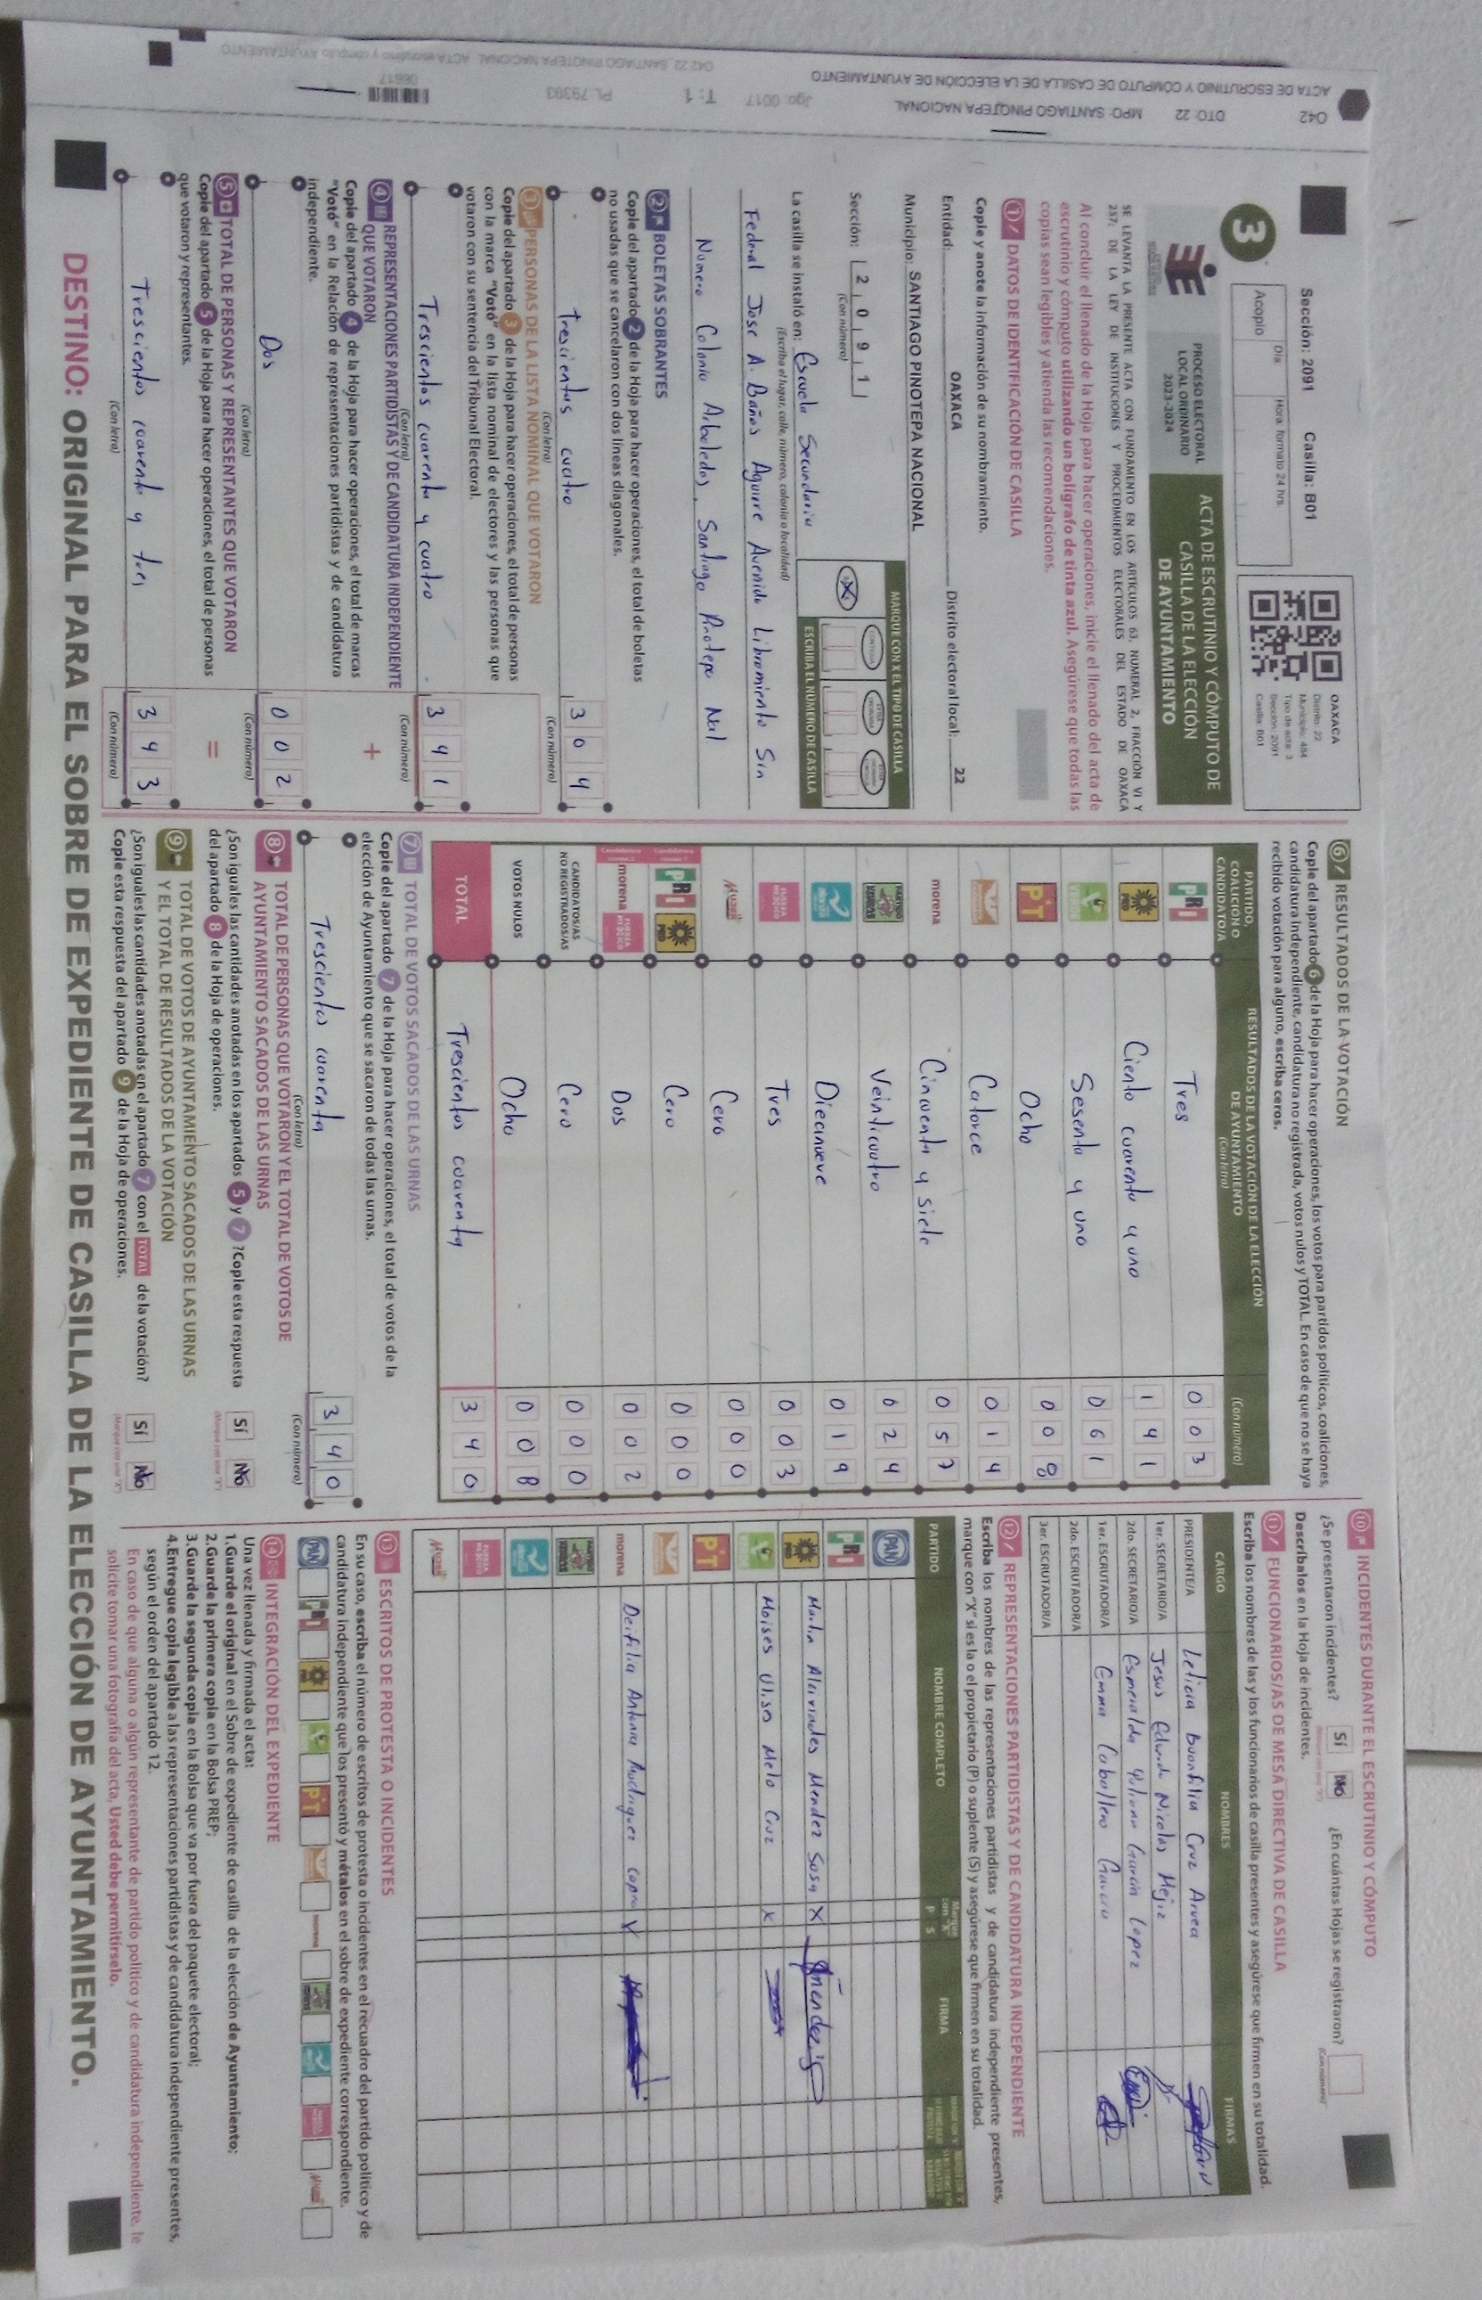 042 DTO: 22 MPO: SANTIAGO PINOTEPA NACIONAL Jgo: 0017 T: 1 PL 79393
ACTA DE ESCRUTINIO Y CÓMPUTO DE CASILLA DE LA ELECCIÓN DE AYUNTAMIENTO
Sección: 2091 Casilla: B01
3
Acopio
Día
Hora: formato 24 hrs.
OAXACA
Distrito: 22
Municipio: 484
Tipo de acta: 3
Sección: 2091
Casilla: B01
PROCESO ELECTORAL
LOCAL ORDINARIO
2023-2024
ACTA DE ESCRUTINIO Y CÓMPUTO DE
CASILLA DE LA ELECCIÓN
DE AYUNTAMIENTO
SE LEVANTA LA PRESENTE ACTA CON FUNDAMENTO EN LOS ARTÍCULOS 63, NUMERAL 2, FRACCIÓN VI Y
257, DE LA LEY DE INSTITUCIONES Y PROCEDIMIENTOS ELECTORALES DEL ESTADO DE OAXACA
Al concluir el llenado de la Hoja para hacer operaciones, inicie el llenado del acta de
escrutinio y cómputo utilizando un bolígrafo de tinta azul. Asegúrese que todas las
copias sean legibles y atienda las recomendaciones.
1 DATOS DE IDENTIFICACIÓN DE CASILLA
Copie y anote la información de su nombramiento.
Entidad: OAXACA Distrito electoral local: 22
Municipio: SANTIAGO PINOTEPA NACIONAL
Sección: 2 0 9 1
(Con número)
MARQUE CON X EL TIPO DE CASILLA
ESCRIBA EL NÚMERO DE CASILLA
La casilla se instaló en: Escuela Secundaria
(Escriba el lugar, calle, número, colonia o localidad)
Federal Jose A. Baños Aguirre Avenida Libramiento Sin
Numero Colonia Arboledas, Santiago Pinotepa Nal
2 BOLETAS SOBRANTES
Copie del apartado 2 de la Hoja para hacer operaciones, el total de boletas
no usadas que se cancelaron con dos líneas diagonales.
trescientos cuatro 3 0 4
(Con letra) (Con número)
3 PERSONAS DE LA LISTA NOMINAL QUE VOTARON
Copie del apartado 3 de la Hoja para hacer operaciones, el total de personas
con la marca "Votó" en la lista nominal de electores y las personas que
votaron con su sentencia del Tribunal Electoral.
Trescientos cuarenta y cuatro 3 4 1
(Con letra) (Con número)
+
4 REPRESENTACIONES PARTIDISTAS Y DE CANDIDATURA INDEPENDIENTE
QUE VOTARON
Copie del apartado 4 de la Hoja para hacer operaciones, el total de marcas
"Votó" en la Relación de representaciones partidistas y de candidatura
independiente.
Dos 0 0 2
(Con letra) (Con número)
=
5 TOTAL DE PERSONAS Y REPRESENTANTES QUE VOTARON
Copie del apartado 5 de la Hoja para hacer operaciones, el total de personas
que votaron y representantes.
Trescientos cuarenta y tres 3 4 3
(Con letra) (Con número)
6 RESULTADOS DE LA VOTACIÓN
Copie del apartado 6 de la Hoja para hacer operaciones, los votos para partidos políticos, coaliciones,
candidatura independiente, candidatura no registrada, votos nulos y TOTAL. En caso de que no se haya
recibido votación para alguno, escriba ceros.
PARTIDO, COALICIÓN O CANDIDATO/A
RESULTADOS DE LA VOTACIÓN DE LA ELECCIÓN DE AYUNTAMIENTO
(Con letra) (Con número)
PRI Tres 0 0 3
PRD Ciento cuarenta y uno 1 4 1
VERDE Sesenta y uno 0 6 1
PT Ocho 0 0 8
Catorce 0 1 4
morena Cincuenta y siete 0 5 7
Veinticuatro 0 2 4
Diecinueve 0 1 9
Tres 0 0 3
Mujer Cero 0 0 0
PRI PRD Cero 0 0 0
morena Dos 0 0 2
CANDIDATOS/AS NO REGISTRADOS/AS Cero 0 0 0
VOTOS NULOS Ocho 0 0 8
TOTAL Trescientos cuarenta 3 4 0
7 TOTAL DE VOTOS SACADOS DE LAS URNAS
Copie del apartado 7 de la Hoja para hacer operaciones, el total de votos de la
elección de Ayuntamiento que se sacaron de todas las urnas.
Trescientos cuarenta 3 4 0
(Con letra) (Con número)
8 TOTAL DE PERSONAS QUE VOTARON Y EL TOTAL DE VOTOS DE
AYUNTAMIENTO SACADOS DE LAS URNAS
¿Son iguales las cantidades anotadas en los apartados 5 y 7 ? Copie esta respuesta
del apartado 8 de la Hoja de operaciones.
Sí No
9 TOTAL DE VOTOS DE AYUNTAMIENTO SACADOS DE LAS URNAS
Y EL TOTAL DE RESULTADOS DE LA VOTACIÓN
¿Son iguales las cantidades anotadas en el apartado 7 con el TOTAL de la votación?
Copie esta respuesta del apartado 9 de la Hoja de operaciones.
Sí No
10 INCIDENTES DURANTE EL ESCRUTINIO Y CÓMPUTO
¿Se presentaron incidentes? Sí No ¿En cuántas Hojas se registraron?
Descríbalos en la Hoja de incidentes.
11 FUNCIONARIOS/AS DE MESA DIRECTIVA DE CASILLA
Escriba los nombres de las y los funcionarios de casilla presentes y asegúrese que firmen en su totalidad.
CARGO NOMBRES FIRMAS
PRESIDENTE/A Leticia Buonfilia Cruz Arvea
1er. SECRETARIO/A Jesus Eduardo Nicolas Mejia
2do. SECRETARIO/A Esmeralda Yuliana Garcia Lopez
1er. ESCRUTADOR/A Emma Caballero
2do. ESCRUTADOR/A
3er. ESCRUTADOR/A
12 REPRESENTACIONES PARTIDISTAS Y DE CANDIDATURA INDEPENDIENTE
Escriba los nombres de las representaciones partidistas y de candidatura independiente presentes,
marque con "X" si es la o el propietario (P) o suplente (S) y asegúrese que firmen en su totalidad.
PARTIDO NOMBRE COMPLETO P S FIRMA
PAN
PRI
PRD Alavrades Mendez Sosa X
VERDE Moises Ulises Melo Cruz X
PT
morena Deifilia Antonia Rodriguez X
Mujer
13 ESCRITOS DE PROTESTA O INCIDENTES
En su caso, escriba el número de escritos de protesta o incidentes en el recuadro del partido político y de
candidatura independiente que los presentó y métalos en el sobre de expediente correspondiente.
PAN PRI PRD PT morena Mujer
14 INTEGRACIÓN DEL EXPEDIENTE
Una vez llenada y firmada el acta:
1.Guarde el original en el Sobre de expediente de casilla de la elección de Ayuntamiento;
2.Guarde la primera copia en la Bolsa PREP;
3.Guarde la segunda copia en la Bolsa que va por fuera del paquete electoral;
4.Entregue copia legible a las representaciones partidistas y de candidatura independiente presentes,
según el orden del apartado 12.
En caso de que alguna o algún representante de partido político y de candidatura independiente, le
solicite tomar una fotografía del acta, Usted debe permitírselo.
DESTINO: ORIGINAL PARA EL SOBRE DE EXPEDIENTE DE CASILLA DE LA ELECCIÓN DE AYUNTAMIENTO.